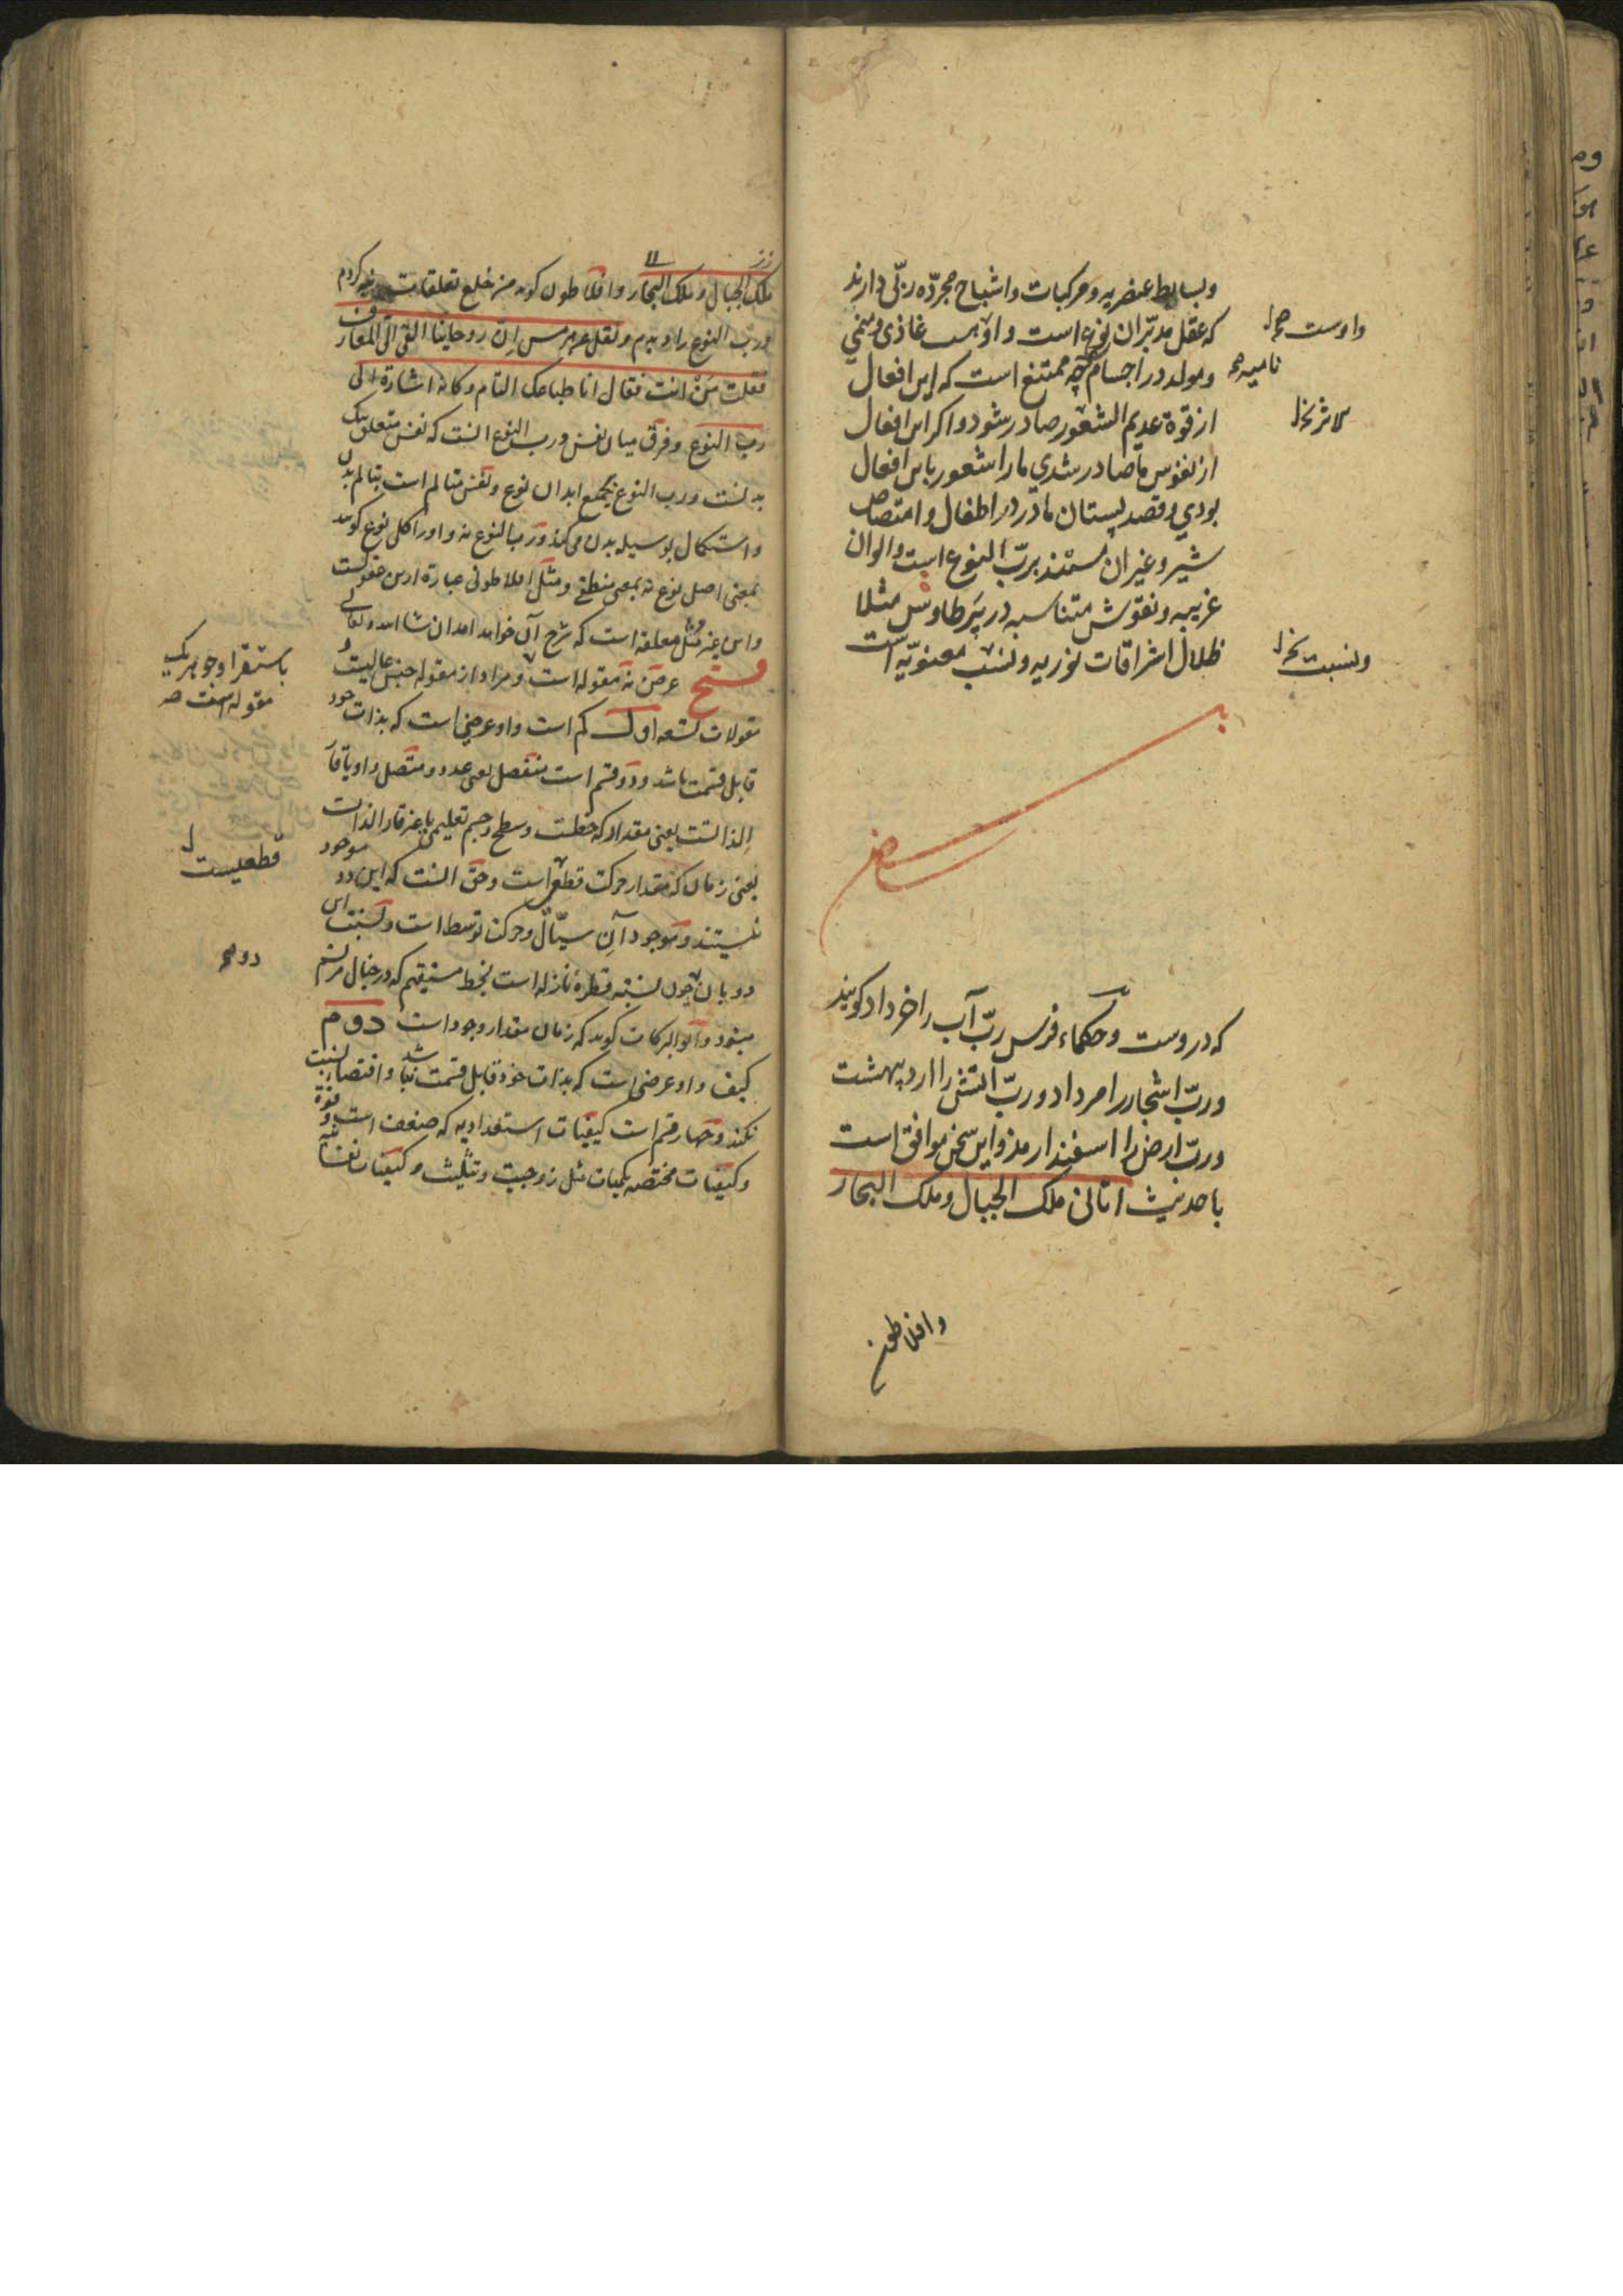 وبسایط عنصریه و مرکبات و اشباح مجرده ربّی دارند
که عقل مدبّر ان نوع است و اوست غاذی و منمی
و مولد در اجسام چه ممتنع است که این افعال
از قوة عدیم الشعور صادر شود و اکر این افعال
از نفوس ما صادر شدی ما را شعور باین افعال
بودی و قصد پستان مادر در اطفال و امتصاص
شیر و غیر ان مستند بربّ النوع است و الوان
غریبه و نقوش متناسبه در پر طاوس مثلا
ظلال اشراقات نوریه و نسب معنویّه است
واوست
نامیه
ونسبت
که دروست و حکماء فرس ربّ آب را خرداد کویند
و ربّ اشجار را مرداد و ربّ اتش را اردیبهشت
و ربّ ارض را اسفندارمذ و این سخن موافق است
با حدیث اتانی ملک الجبال و ملک البحار
وافلاطون
ملک الجبال و ملک البحار و افلاطون کوید من خلع تعلقات کردم
و رب النوع را دیدم و نقل عن هرمس ان روحانیا القی الیّ المعارف
فقلت مَنْ انت فقال انا طباعک التام و کانه اشارة الی
رب النوع و فرق میان نفس و رب النوع انست که نفس متعلق بیک
بدنست و رب النوع بجمیع ابدان نوع و نفس متالم است بتالم بدن
و استکمال بوسیله بدن می کند و رب النوع نه و او را کلی نوع کویند
بمعنی اصل نوع نه بمعنی منطقی و مثل افلاطونی عبارة ازین عقولست
و این غیر مثل معلقه است که شرح آن خواهد امد ان شا الله تعالی
فتح عرض نه مقوله است و مراد از مقوله جنس عالیست و
مقولات تسعه اول کم است و او عرضی است که بذات خود
قابل قسمت باشد و دو قسم است منفصل یعنی عدد و متصل و او یا قارّ
الذاتست یعنی مقدار که خطست و سطح و جسم تعلیمی یا غیر قار الذات
یعنی زمان که مقدار حرکت قطع است و حق انست که این دو موجود
نیستند و موجود آنِ سیّال و حرکت توسط است و نسبت این
دو بان چون نسبت قطره نازله است بخط مستقیم که در خیال مرتسم
میشود و ابو البرکات کوید که زمان مقدار وجود است دوم
کیف و او عرضی است که بذات خود قابل قسمت نباشد و اقتضا نسبت
نکند و چهار قسم است کیفیات استعدادیه که ضعف است و قوة
و کیفیات مختصه بکمیات مثل زوجیت و تثلیث و کیفیات نفسانیه
باستقرا و جوهر یک
مقوله است
قطعیست
دوم